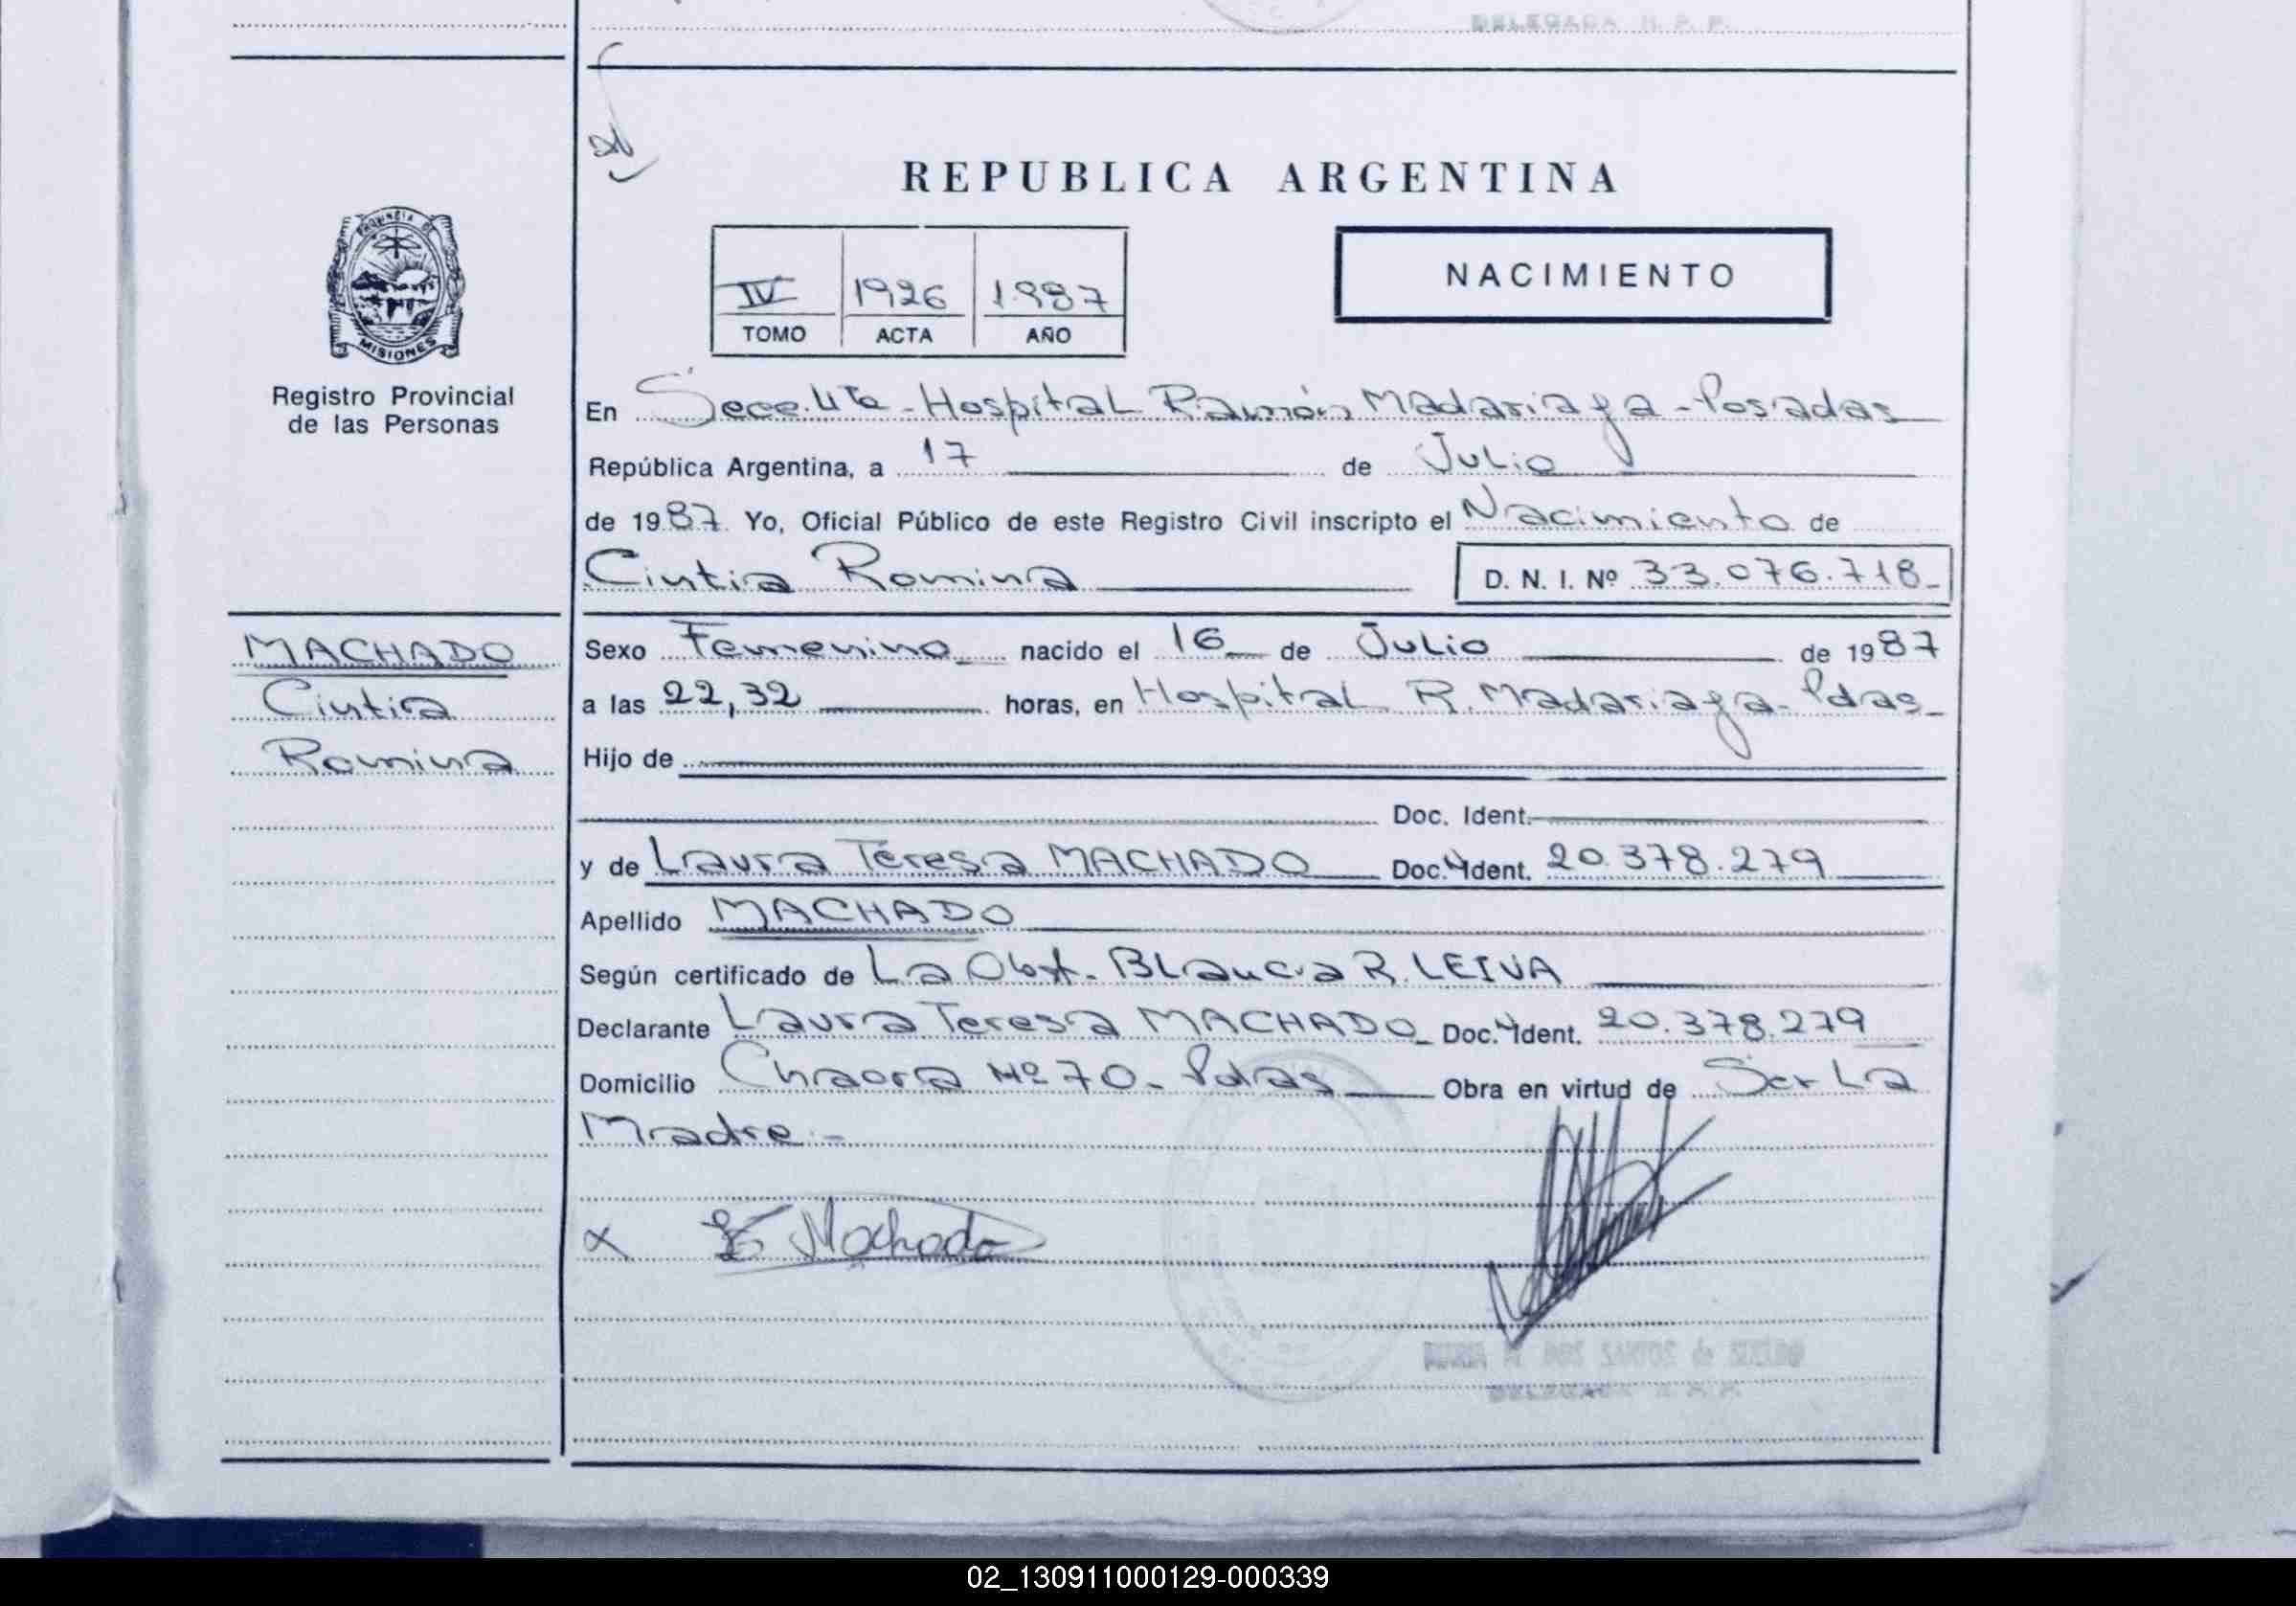 DELEGADA R. P. P.
REPUBLICA ARGENTINA
NACIMIENTO
IV 1926 1987
TOMO ACTA AÑO
PROVINCIA DE
MISIONES
Registro Provincial
de las Personas
En Secc. 4ta - Hospital Ramón Madariaga - Posadas
República Argentina, a 17 de Julio
de 1987. Yo, Oficial Público de este Registro Civil inscripto el Nacimiento de
Cintia Romina D. N. I. Nº 33.076.718-
MACHADO
Cintia
Romina
Sexo Femenino nacido el 16 de Julio de 1987
a las 22,32 horas, en Hospital R. Madariaga - Pdas-
Hijo de
Doc. Ident.
y de Laura Teresa MACHADO Doc. Ident. 20.378.279
Apellido MACHADO
Según certificado de La Obst. Blanca R. LEIVA
Declarante Laura Teresa MACHADO Doc. Ident. 20.378.279
Domicilio Chacra Nº 70 - Pdas Obra en virtud de Ser La
Madre.-
x Machado
DOS SANTOS de
DELEGADA R. P. P.
02_130911000129-000339